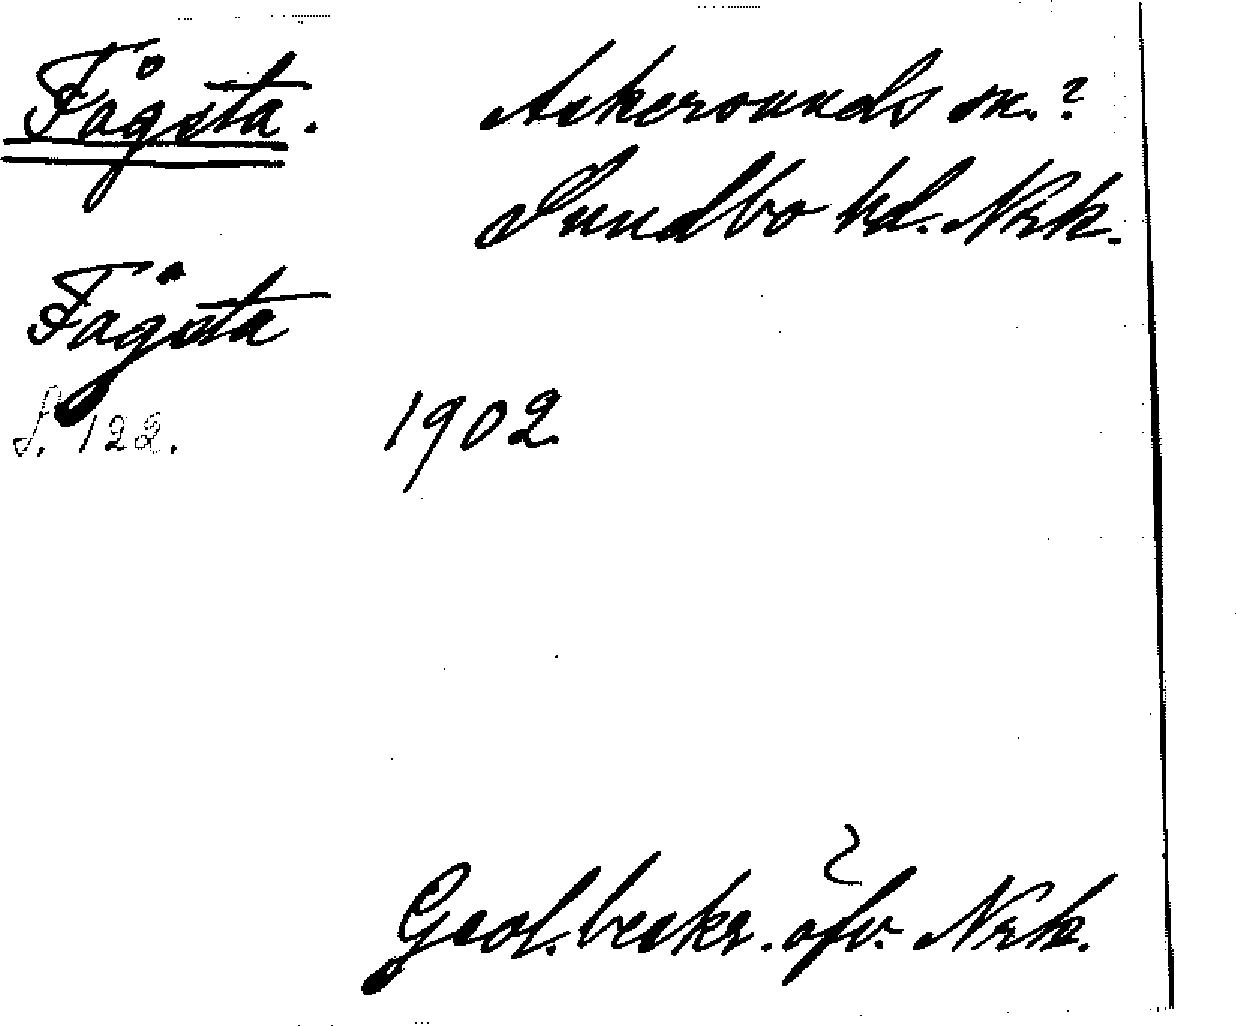 Fågsta. Askersunds sn.?
Sundbo hd. Nrk.
Fågsta
S. 122. 1902
Geol. beskr. öfv. Nrk.